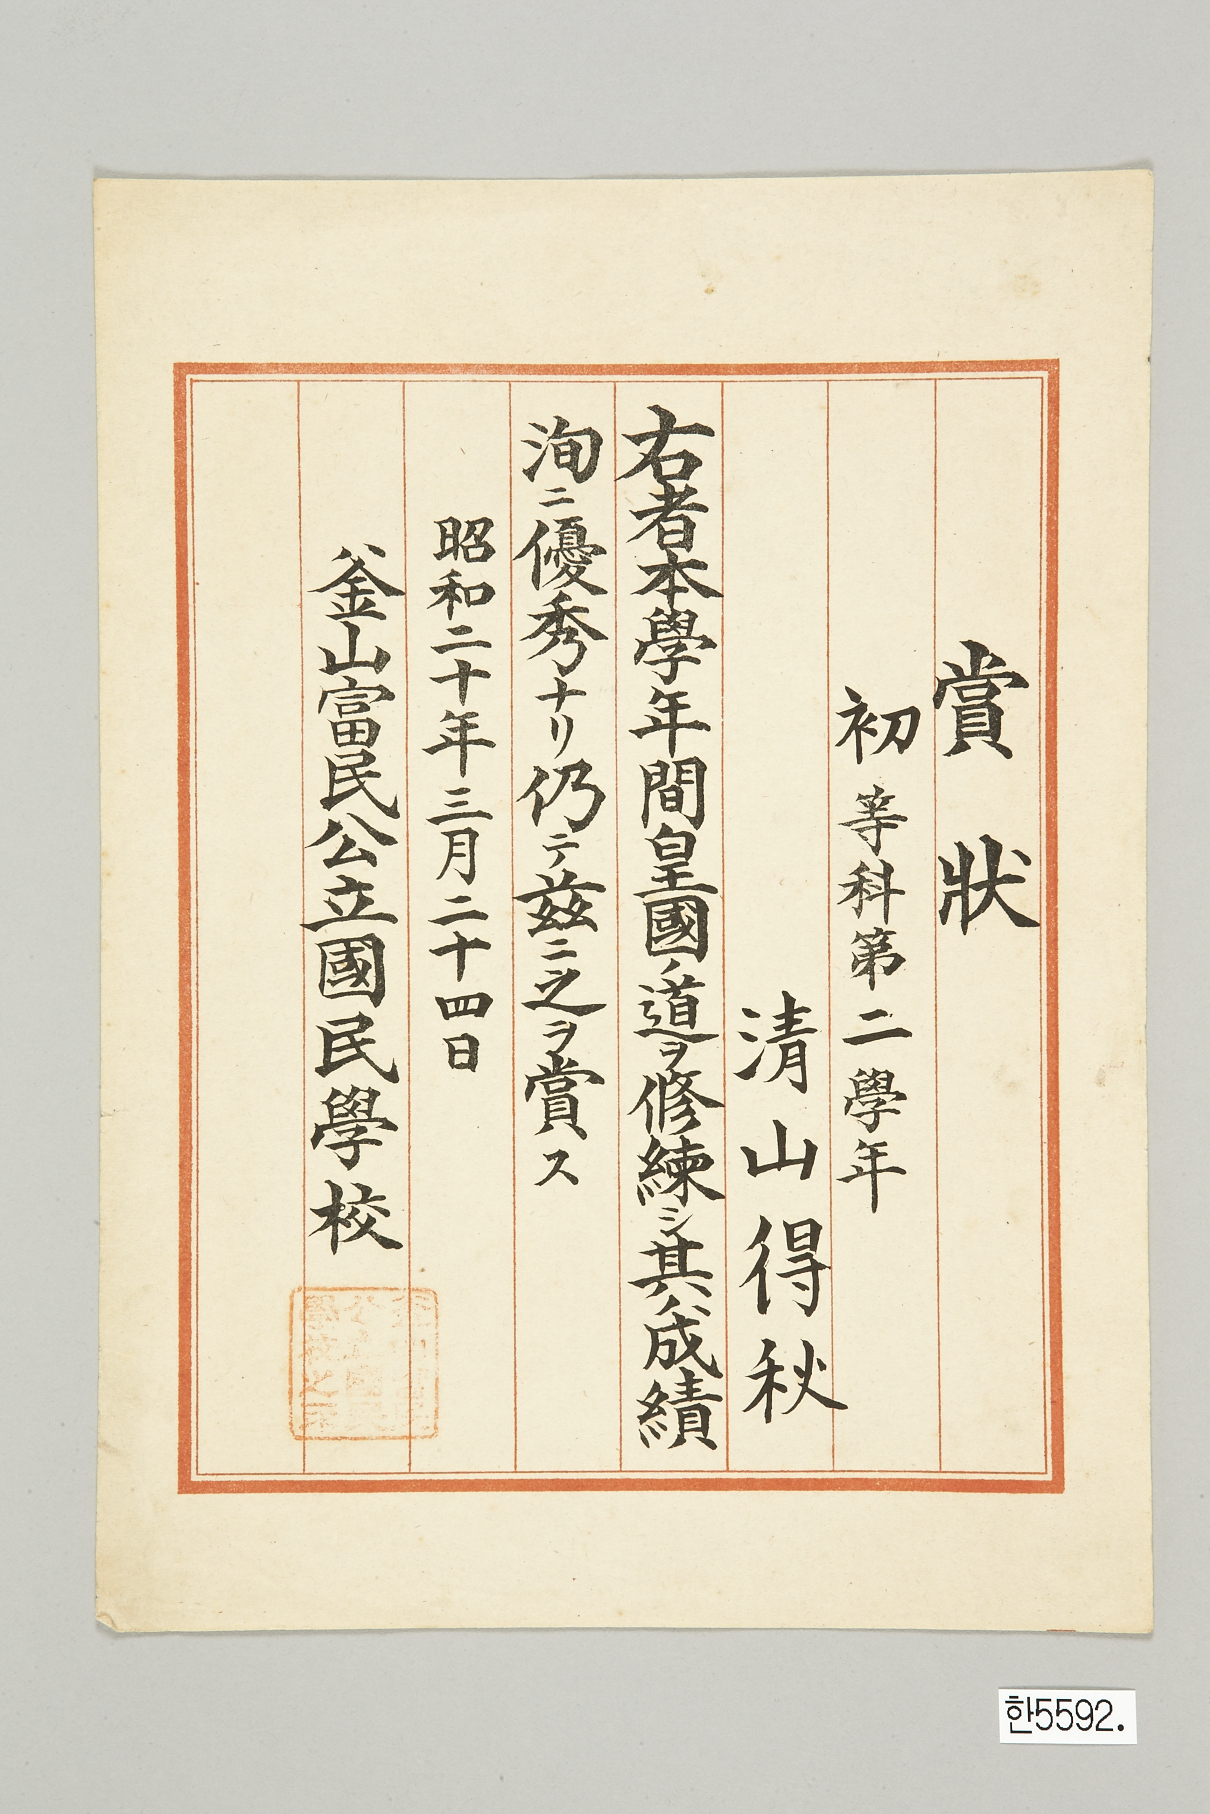 賞狀
初等科第二學年
清山得秋
右者本學年間皇國ノ道ヲ修練シ其ノ成績
洵ニ優秀ナリ仍テ茲ニ之ヲ賞ス
昭和二十年三月二十四日
釜山富民公立國民學校
한5592.